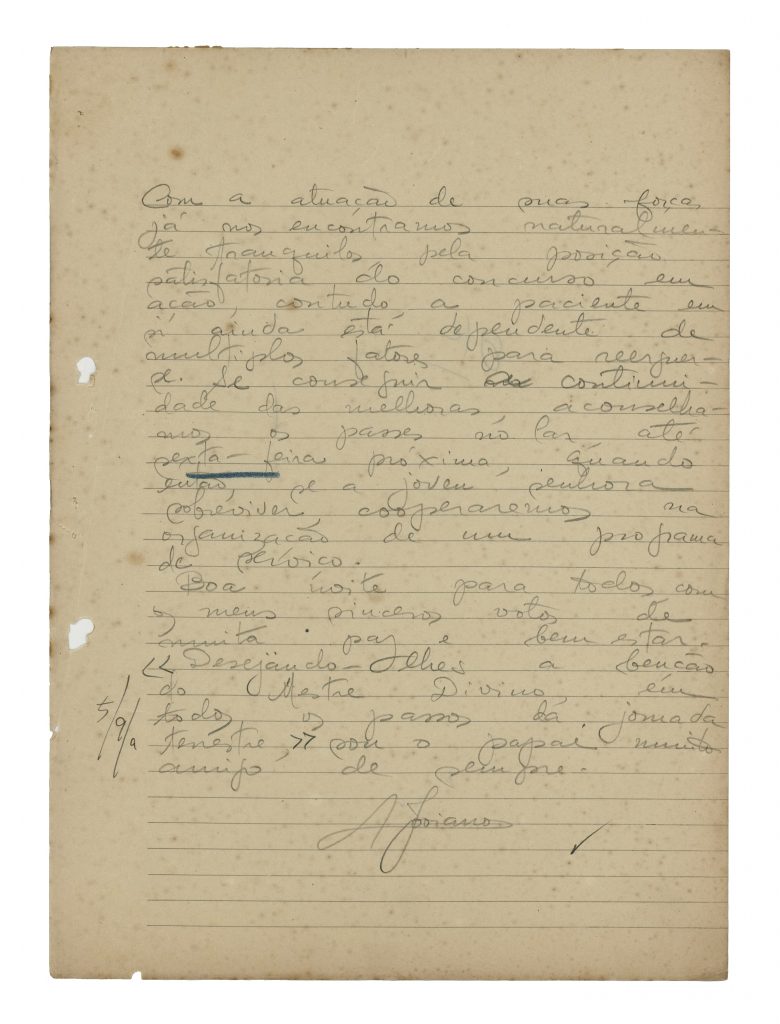 Com a atuação de suas forças
já nos encontramos naturalmen-
te tranquilos pela posição
satisfatoria do concurso em
ação, contudo a paciente em
si ainda está dependente de
multiplos fatores para reerguer-
se. Se conseguir continui-
dade das melhoras, aconselha-
mos os passes no lar até
sexta-feira próxima, quando
então, se a joven senhora
sobreviver, cooperaremos na
organização de um programa
de serviço.
Boa noite para todos com
os meus sinceros votos de
muita paz e bem estar.
<< Desejando-lhes a benção
do Mestre Divino, em
todos os passos da jornada
terrestre, >> sou o papai muito
amigo de sempre.
5/9/a